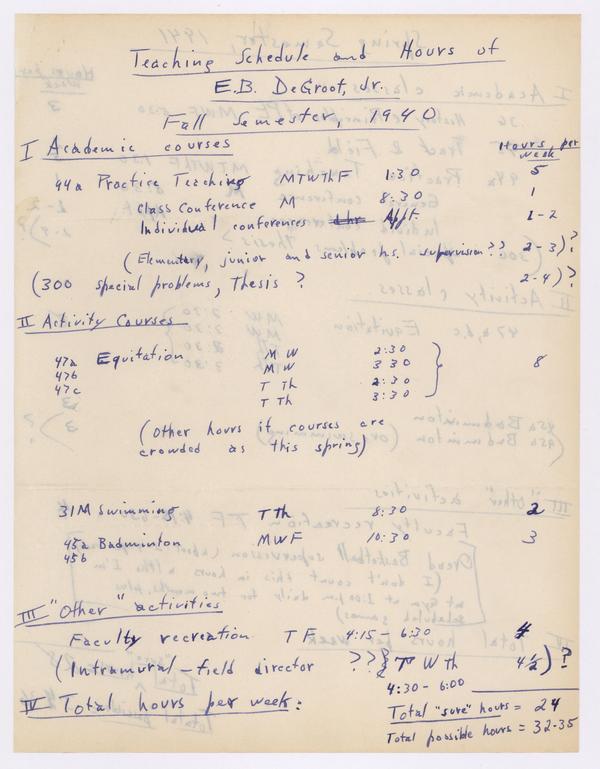 Teaching Schedule and Hours of
E.B. DeGroot, Jr.
Fall Semester, 1940
I Academic courses Hours per week
44a Practice Teaching MTWThF 1:30 5
Class Conference M 8:30 1
Individual conferences Appt. 1-2
(Elementary, junior and senior h.s. supervision?? 2-3)?
(300 special problems, Thesis ? 2-4)?
II Activity Courses
47a Equitation M W 2:30
47b M W 3 30 8
47c T Th 2:30
T Th 3:30
(Other hours if courses are
crowded as this spring)
31M Swimming T Th 8:30 2
45a Badminton MWF 10:30 3
45b
III "Other" activities
Faculty recreation T F 4:15 - 6:30 4
(Intramural-field director ?? T W Th 4½)?
4:30 - 6:00
IV Total hours per week:
Total "sure" hours = 24
Total possible hours = 32-35